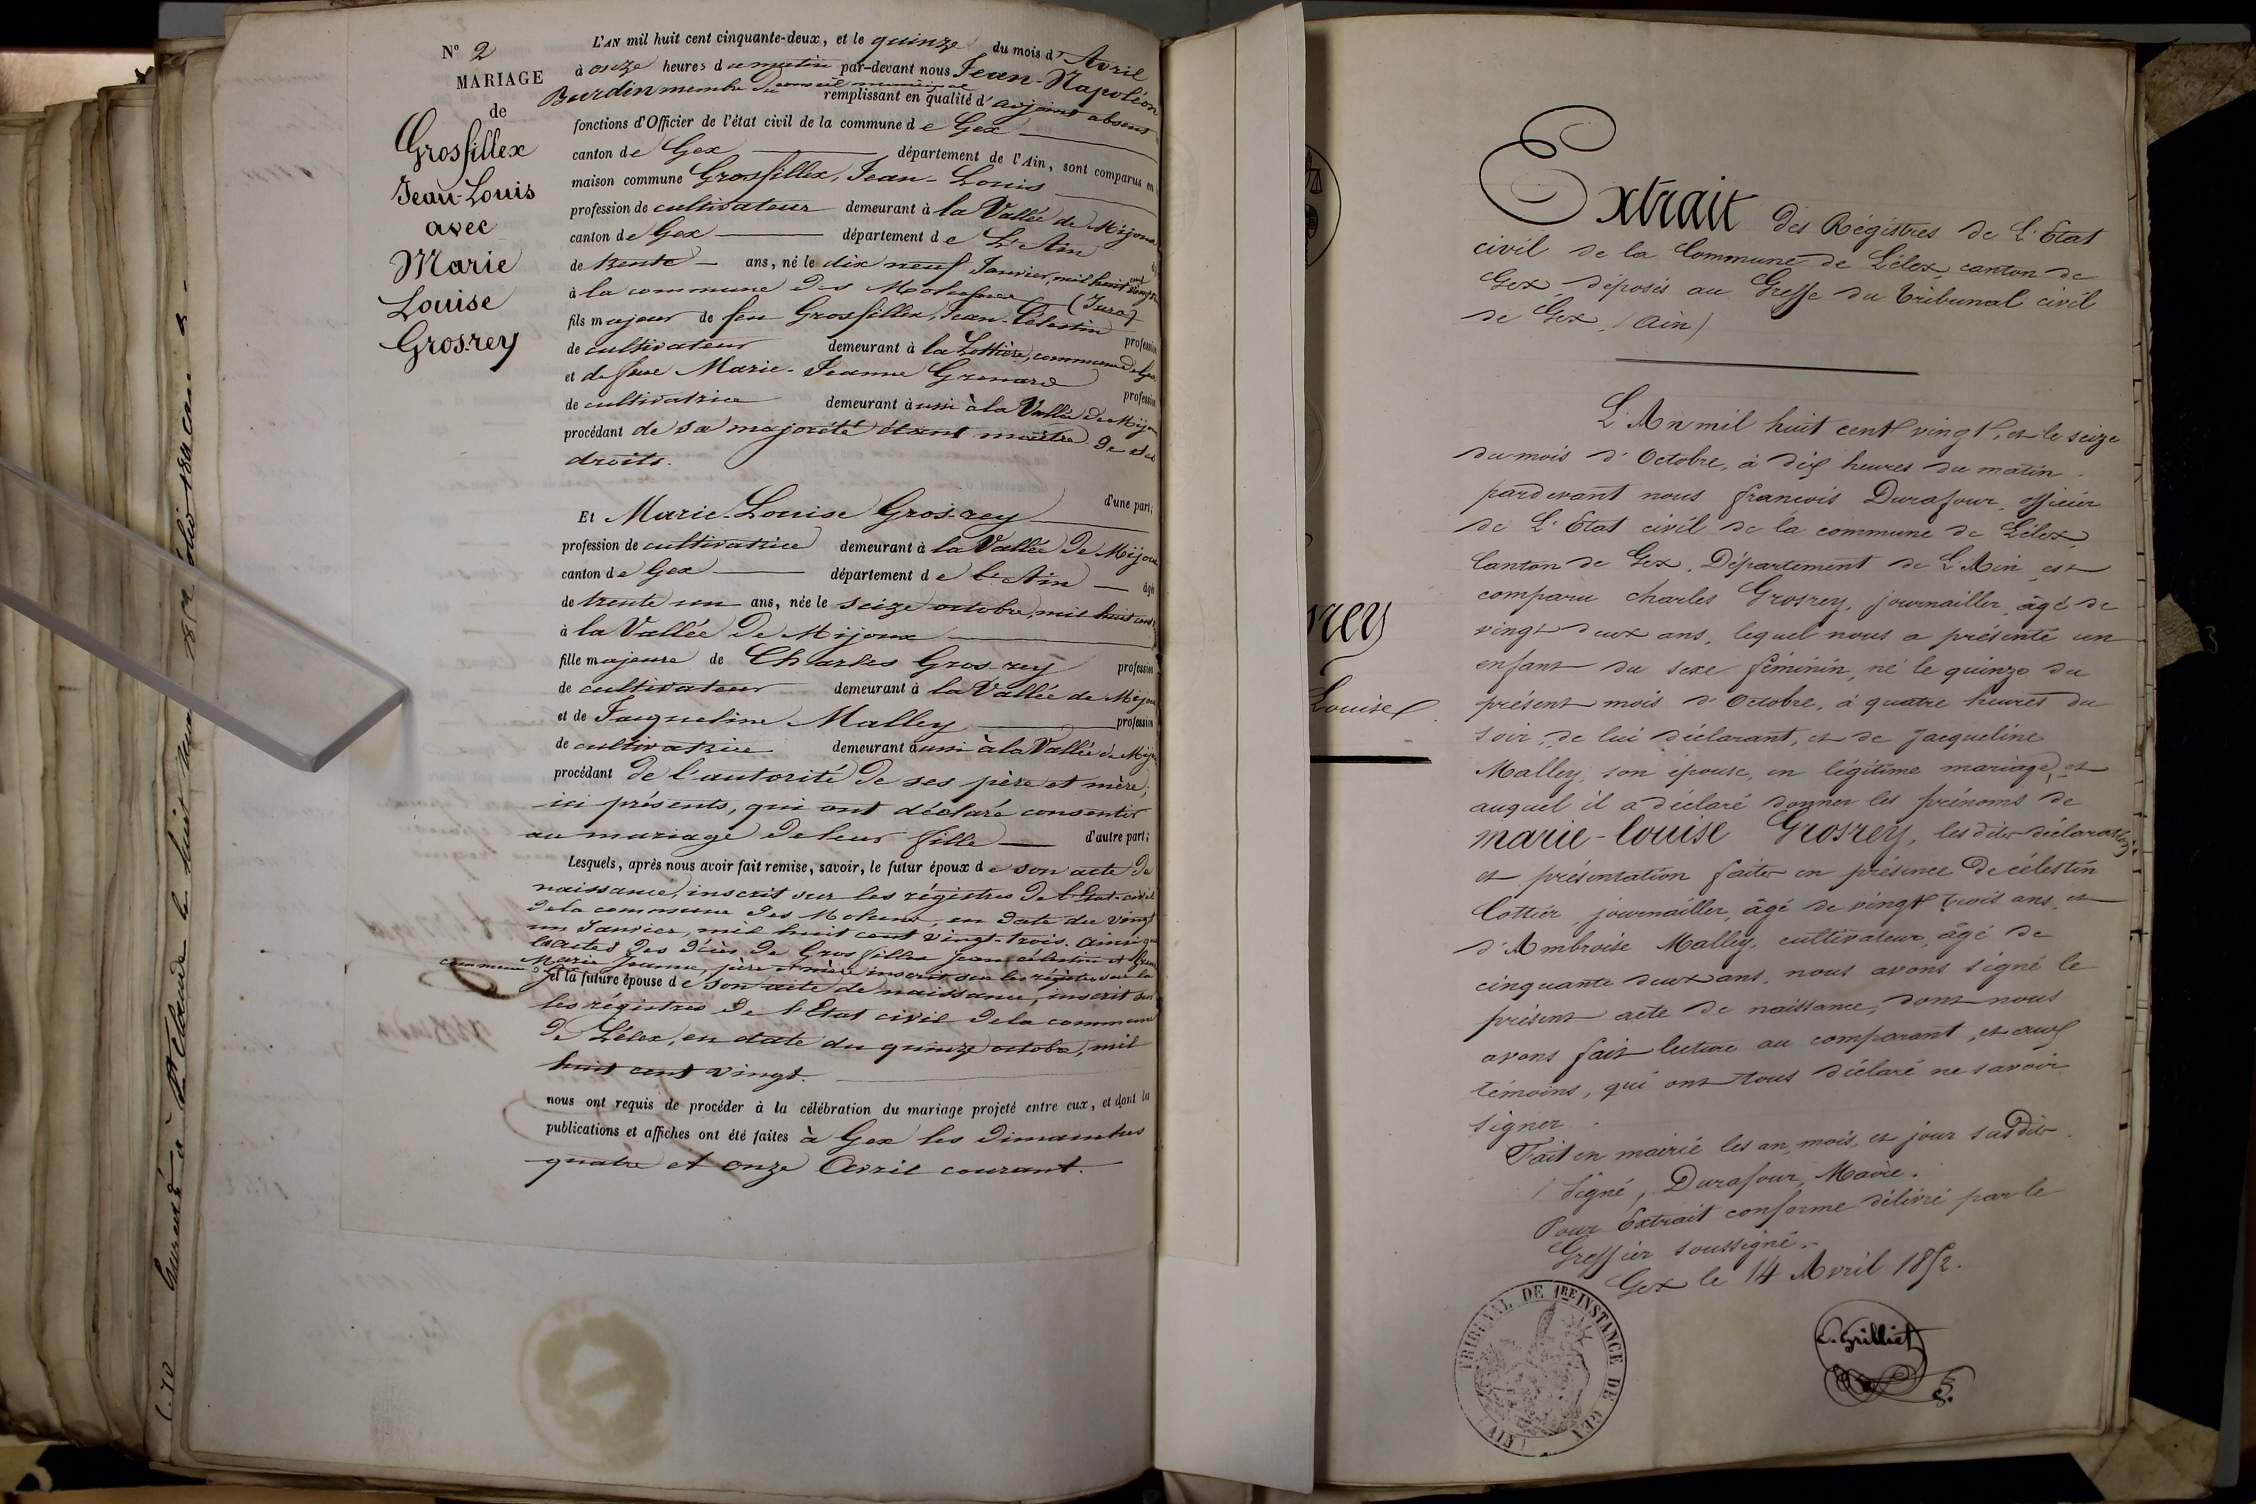 N° 2
MARIAGE
de
Grosfillex
Jean-Louis
avec
Marie
Louise
Grosrey
L'AN mil huit cent cinquante-deux, et le quinze du mois d'Avril
à onze heures du matin par-devant nous Jean-Napoléon
Burdin membre du conseil municipal remplissant en qualité d'adjoint absent
fonctions d'Officier de l'état civil de la commune de Gex
canton de Gex département de l'Ain, sont comparus en
maison commune Grosfillex, Jean-Louis
profession de cultivateur demeurant à la Vallée de Mijoux
canton de Gex département de L'Ain
de trente ans, né le dix neuf Janvier, mil huit cent
à la commune des Molunes (Jura)
fils majeur de feu Grosfillex, Jean-Célestin profession
de cultivateur demeurant à la commune de Gex
et de feue Marie-Jeanne Grenard profession
de cultivatrice demeurant aussi à la Vallée de Mijoux
procédant de sa majorité étant maître de ses
droits.
d'une part;
Et Marie-Louise Gros-rey
profession de cultivatrice demeurant à la Vallée de Mijoux
canton de Gex département de L'Ain âgée
de trente un ans, née le seize octobre, mil huit cent
à la Vallée de Mijoux
fille majeure de Charles Gros-rey profession
de cultivateur demeurant à la Vallée de Mijoux
et de Jacqueline Malley profession
de cultivatrice demeurant aussi à la Vallée de Mijoux
procédant de l'autorité de ses père et mère,
ici présents, qui ont déclaré consentir
au mariage de leur fille d'autre part;
Lesquels, après nous avoir fait remise, savoir, le futur époux de son acte de
naissance, inscrit sur les régistres de l'Etat-civil
de la commune des Molunes, en date du vingt
un Janvier, mil huit cent vingt-trois. ainsi que
les actes des décès de Grosfillex Jean célestin et
Marie Jeanne, père et mère inscrit sur les régistres de la
commune de Gex
et la future épouse de son acte de naissance, inscrit sur
les régistres de l'Etat civil de la commune
de Lélex, en date du quinze octobre, mil
huit cent vingt.
nous ont requis de procéder à la célébration du mariage projeté entre eux, et dont la
publications et affiches ont été faites à Gex les Dimanches
quatre et onze Avril courant.
rey
Louise
Extrait des Régistres de L'Etat
civil de la Commune de Lélex, canton de
Gex déposés au Greffe du tribunal civil
de Gex (Ain)
L'An mil huit cent vingt, et le seize
du mois d'Octobre, à dix heures du matin.
pardevant nous françois Durafour, officier
de L'Etat civil de la commune de Lélex,
Canton de Gex, Département de L'Ain, est
comparu charles Grosrey, journailler, âgé de
vingt deux ans, lequel nous a présenté un
enfant du sexe féminin, né le quinze du
présent mois d'Octobre, à quatre heures du
soir, de lui déclarant, et de Jacqueline
Malley, son épouse, en légitime mariage, et
auquel il a déclaré donner les prénoms de
marie-louise Grosrey, lesdites déclaration
et présentation faites en présence de célestin
Cottier, journailler, âgé de vingt trois ans, et
d'Ambroise Malley, cultivateur, âgé de
cinquante deux ans, nous avons signé le
présent acte de naissance, dont nous
avons fait lecture au comparant, et aux
témoins, qui ont tous déclaré ne savoir
signer.
Fait en mairie les an, mois, et jour susdits.
Signé, Durafour, Maire.
Pour Extrait conforme délivré par le
Greffier soussigné.
Gex le 14 Avril 1852.
TRIBUNAL DE 1RE INSTANCE DE GEX
(AIN)